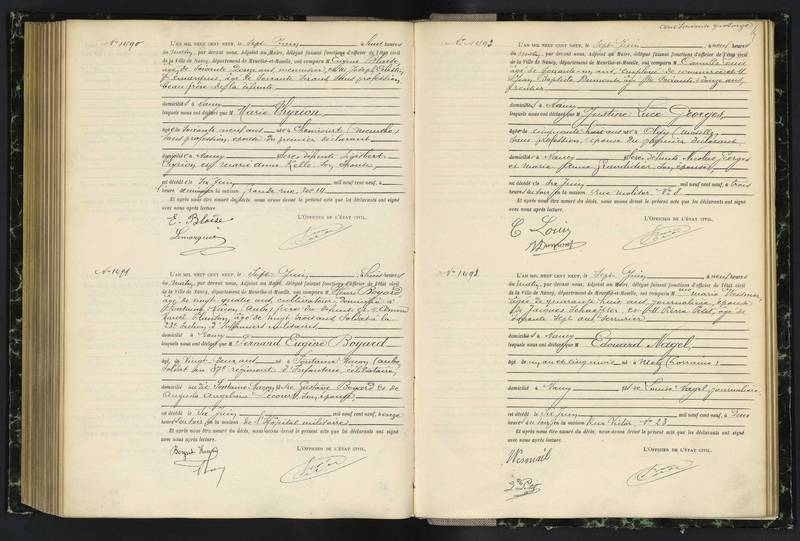 No 1490
L'AN MIL NEUF CENT NEUF, le Sept Juin, à huit heures
du matin, par devant nous, Adjoint au Maire, délégué faisant fonctions d'officier de l'état civil
de la Ville de Nancy, département de Meurthe-et-Moselle, ont comparu M Eugène Blaise,
âgé de soixante onze ans, menuisier, et M Joseph Célestin
Lemarquis, âgé de soixante trois ans, sans profession,
beau frère de la défunte
domiciliés à Nancy
lesquels nous ont déclaré que M Marie Peyrion,
âgée de soixante neuf ans née à (Meurthe)
sans profession, épouse du premier déclarant
domiciliée à Nancy
Peyrion et Marie Anne Kelle, son épouse
est décédée le Six Juin mil neuf cent neuf, à
heure en la maison, grande rue, no 14
Et après nous être assuré du décès, nous avons dressé le présent acte que les déclarants ont signé
avec nous après lecture.
L'OFFICIER DE L'ÉTAT CIVIL.
E. Blaise
Lemarquis
No 1491
L'AN MIL NEUF CENT NEUF, le Sept Juin, à huit heures
du matin, par devant nous, Adjoint au Maire, délégué faisant fonctions d'officier de l'état civil
de la Ville de Nancy, département de Meurthe-et-Moselle, ont comparu M Henri Boyard,
âgé de vingt quatre ans, cultivateur, domicilié à
Fontaine Mâcon, Aube, frère du défunt et
âgé de vingt trois ans, soldat à la
23e section d'infirmiers militaires
domicilié à Nancy
lesquels nous ont déclaré que M Fernand Eugène Boyard
âgé de vingt deux ans né à Fontaine Mâcon (Aube)
soldat au 37e régiment d'Infanterie, célibataire,
domicilié audit Fontaine Mâcon, fils de Gustave Boyard et de
Augustine Angelina Lecourt, son épouse
est décédé le Six Juin mil neuf cent neuf, à onze
heures du soir, en la maison de l'Hôpital militaire
Et après nous être assuré du décès, nous avons dressé le présent acte que les déclarants ont signé
avec nous après lecture.
L'OFFICIER DE L'ÉTAT CIVIL.
Boyard Henri
No 1492
L'AN MIL NEUF CENT NEUF, le Sept Juin, à neuf heures
du matin, par devant nous, Adjoint au Maire, délégué faisant fonctions d'officier de l'état civil
de la Ville de Nancy, département de Meurthe-et-Moselle, ont comparu M Camille Louis
âgé de soixante un ans, employé de commerce et M
Jean Baptiste Dumont, âgé de soixante onze ans,
domiciliés à Nancy
lesquels nous ont déclaré que M Justine Luce Georges,
âgée de cinquante huit ans née à (Moselle)
sans profession, épouse du premier déclarant
domiciliée à Nancy fille des défunts Nicolas Georges
et Marie son épouse,
est décédée le Six Juin mil neuf cent neuf, à trois
heures du soir, en la maison rue Molitor No 8
Et après nous être assuré du décès, nous avons dressé le présent acte que les déclarants ont signé
avec nous après lecture.
L'OFFICIER DE L'ÉTAT CIVIL.
C Louis
Dumont
No 1493
L'AN MIL NEUF CENT NEUF, le Sept Juin, à neuf heures
du matin, par devant nous, Adjoint au Maire, délégué faisant fonctions d'officier de l'état civil
de la Ville de Nancy, département de Meurthe-et-Moselle, ont comparu Mme Marie
âgée de quarante huit ans, journalière, épouse
de Jacques et M Pierre Petit, âgé de
soixante sept ans,
domiciliés à Nancy
lesquels nous ont déclaré que M Edouard Nagel,
âgé de un an et cinq mois né à Metz (Lorraine)
domicilié à Nancy fils de Louise Nagel, journalière
est décédé le Six Juin mil neuf cent neuf, à deux
heures du soir, en la maison Rue Victor No 23
Et après nous être assuré du décès, nous avons dressé le présent acte que les déclarants ont signé
avec nous après lecture.
L'OFFICIER DE L'ÉTAT CIVIL.